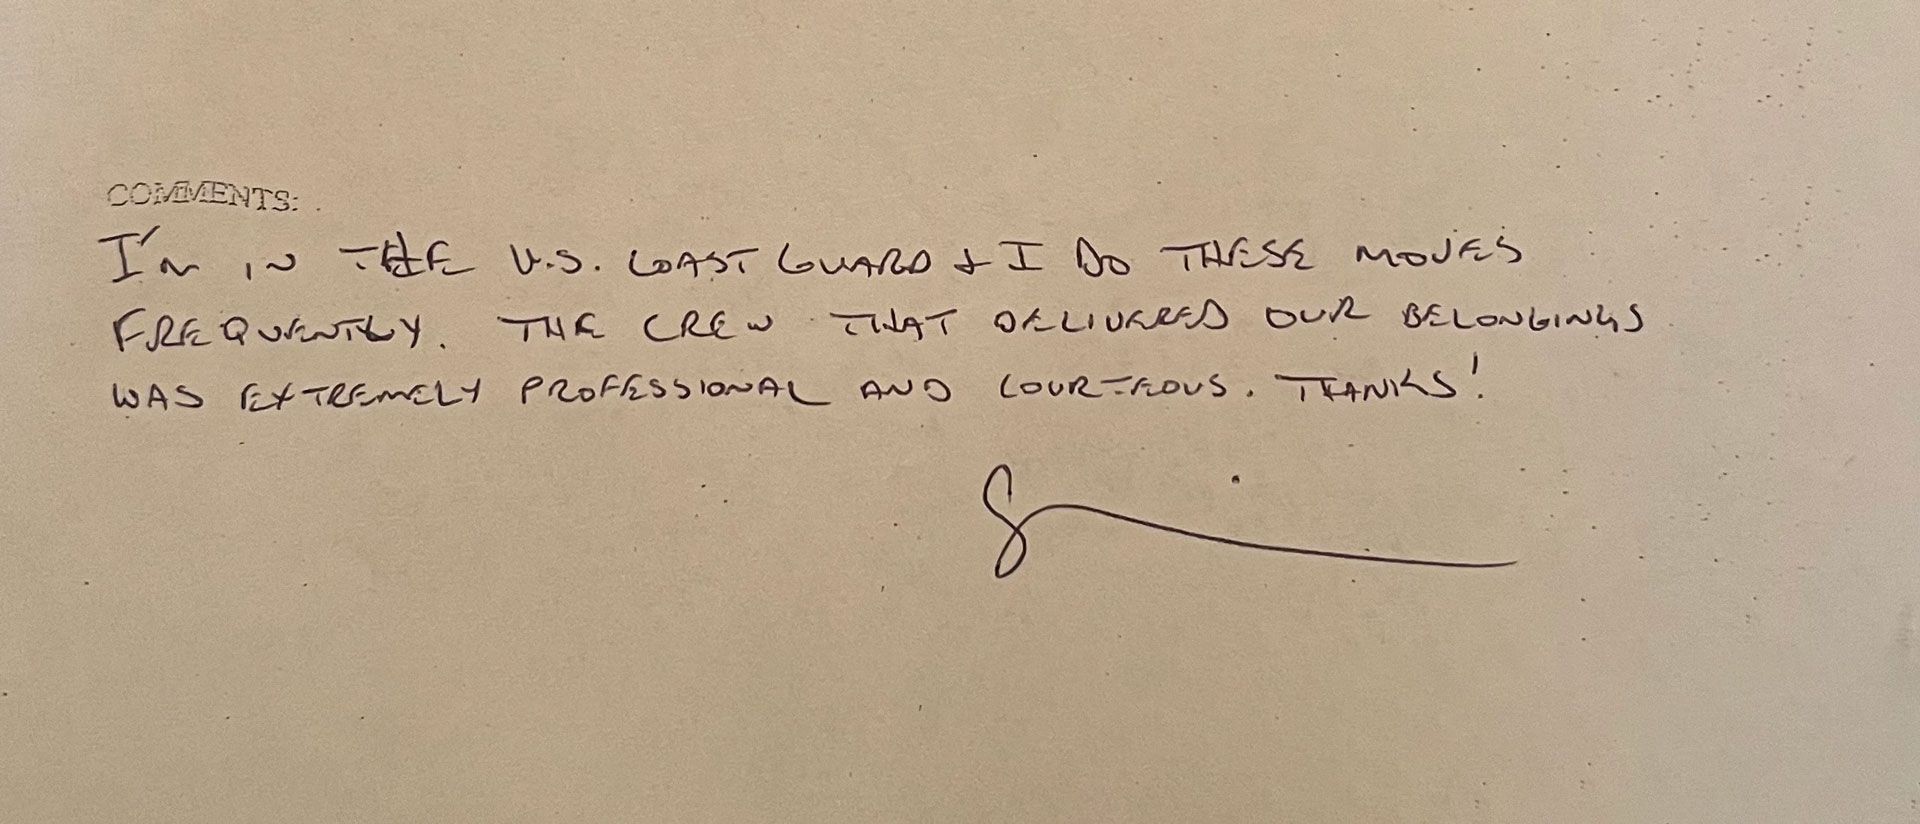 COMMENTS:
I'm IN THE U.S. COAST GUARD & I DO THESE MOVES
FREQUENTLY. THE CREW THAT DELIVERED OUR BELONGINGS
WAS EXTREMELY PROFESSIONAL AND COURTEOUS. THANKS!